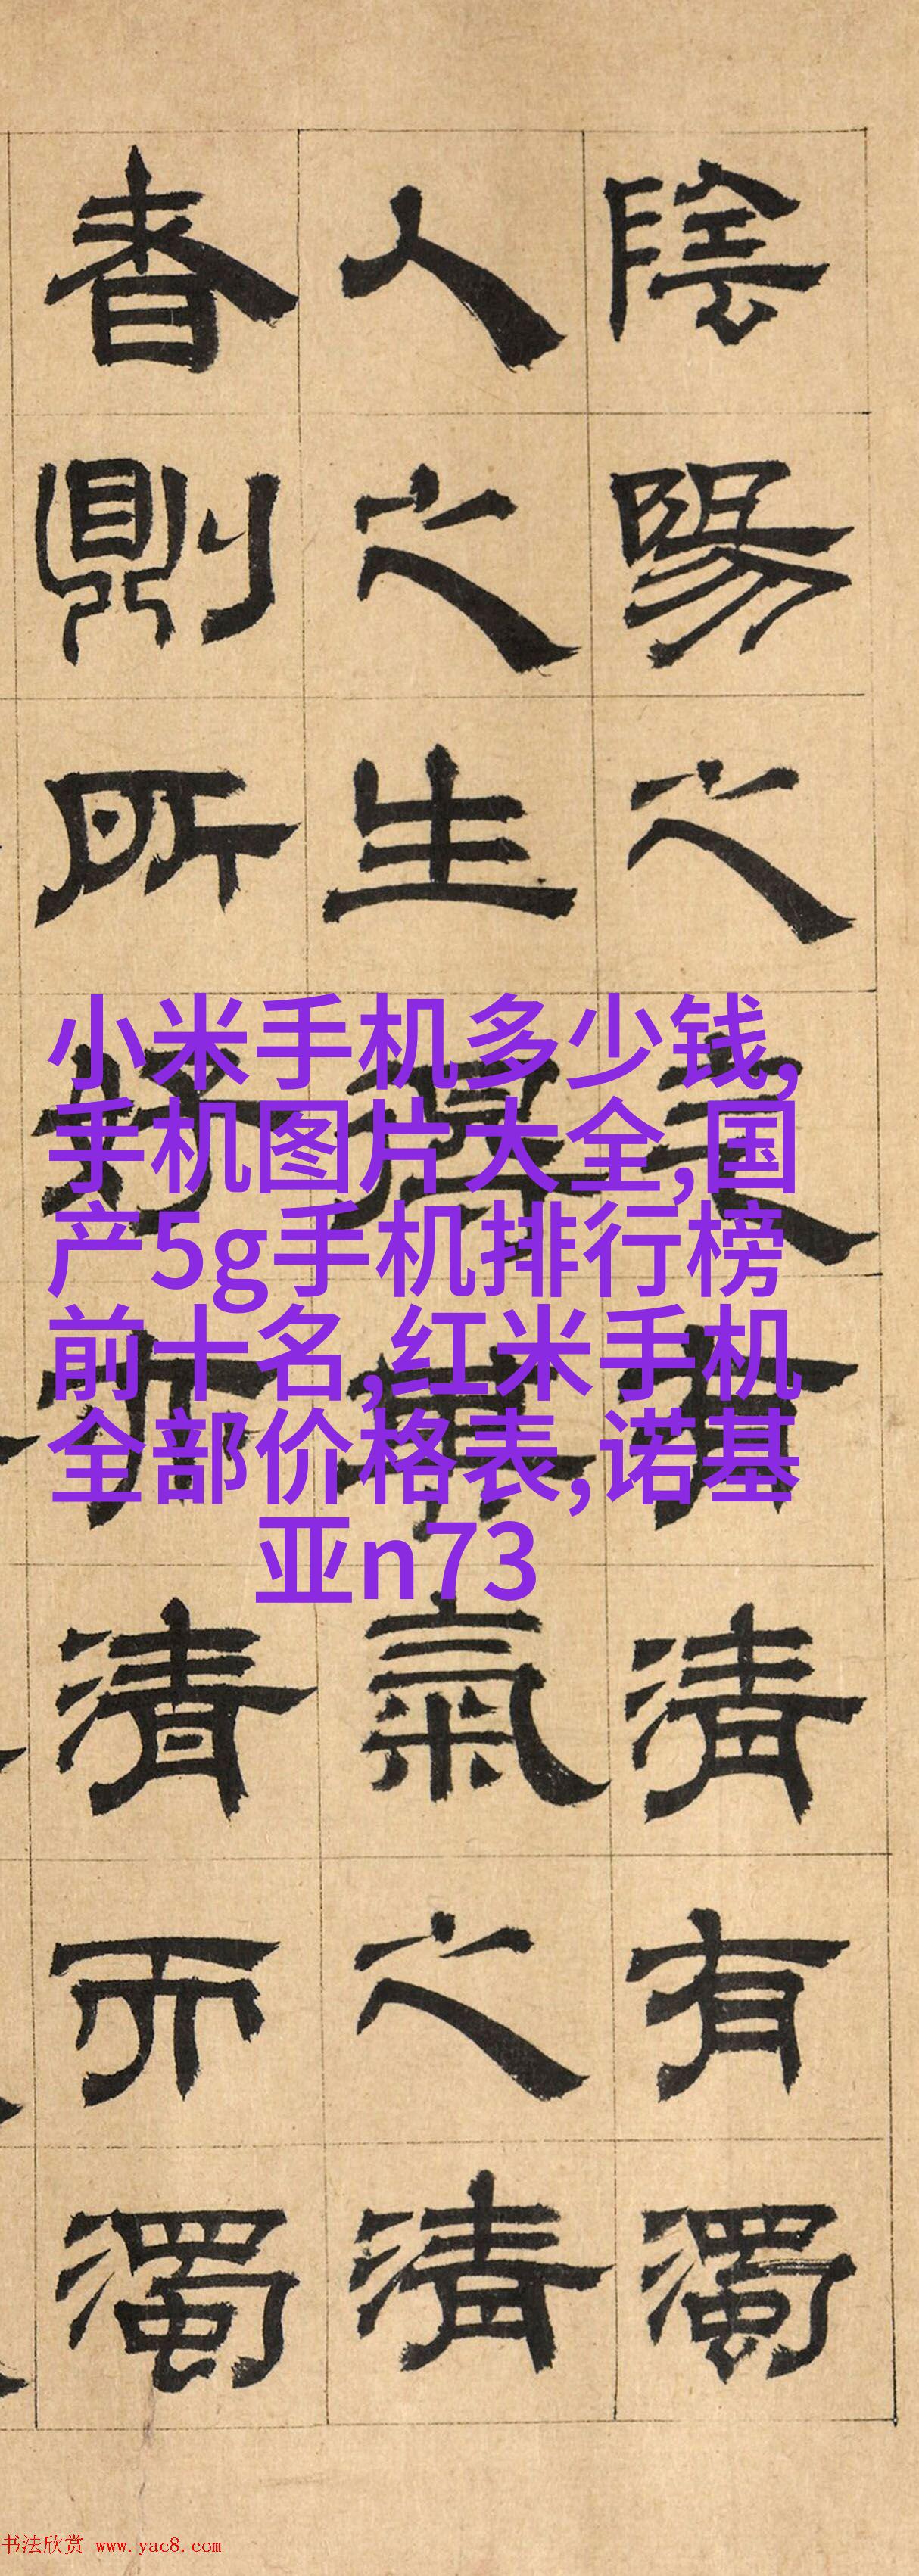 陰陽之清有濁
人之生得其氣之清
則所好亦清而濁
小米手机多少钱,
手机图片大全,国
产5g手机排行榜
前十名,红米手机
全部价格表,诺基
亚n73
书法欣赏 www.yac8.com